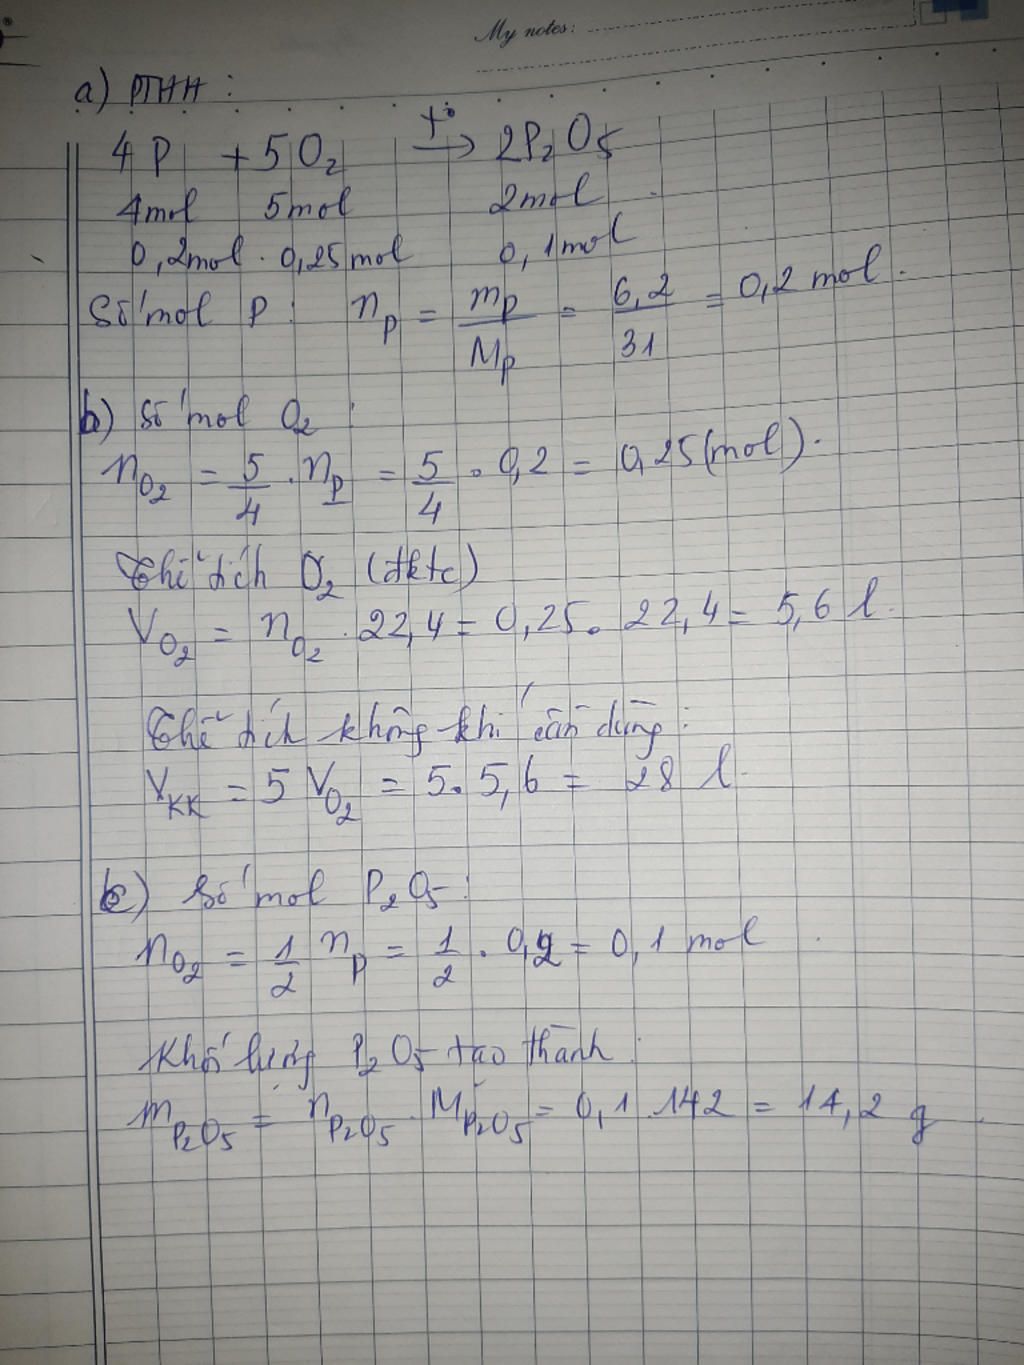 My notes:
a) PTHH :
4P + 5O₂ —t°→ 2P₂O₅
4mol 5mol 2mol
0,2mol . 0,25mol 0,1mol
Số mol P : n_P = m_P/M_P = 6,2/31 = 0,2 mol.
b) Số mol O₂ :
n_O₂ = 5/4 . n_P = 5/4 . 0,2 = 0,25(mol).
Thể tích O₂ (đktc)
V_O₂ = n_O₂ . 22,4 = 0,25. 22,4 = 5,6 l.
Thể tích không khí cần dùng:
V_KK = 5 V_O₂ = 5. 5,6 = 28 l.
c) Số mol P₂O₅ :
n_O₂ = 1/2 n_P = 1/2 . 0,2 = 0,1 mol .
Khối lượng P₂O₅ tạo thành :
m_P₂O₅ = n_P₂O₅ . M_P₂O₅ = 0,1 . 142 = 14,2 g .